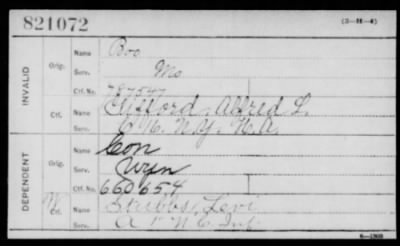 821072
(3-11-4)
INVALID
Orig.
Name Boo
Serv. Mo
Ctf. No. 787547
Ctf.
Clifford, Alfred L.
C 6. N.Y. H.A.
DEPENDENT
Orig.
Name Con
Serv. Wyn
Ctf. No. 660654
Ctf.
Name Stubbs, Levi
Serv. A 1" N.C. Inf
6-1909